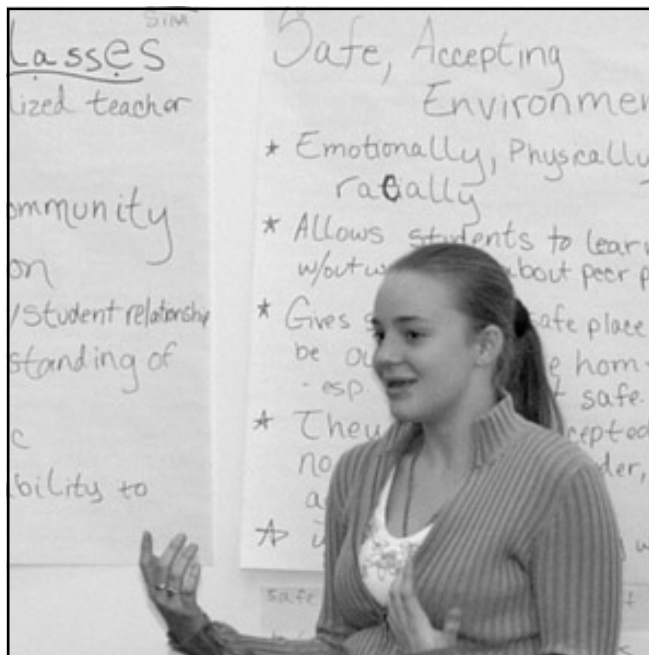 SIM
lasses
lized teacher
ommunity
on
/student relationship
standing of
c
bility to
Safe, Accepting
Environmen
* Emotionally, Physically
racially
* Allows students to lear
w/out w about peer p
* Gives s safe place
be ou e hom
- esp t safe.
* They cepted
no der,
a
safe